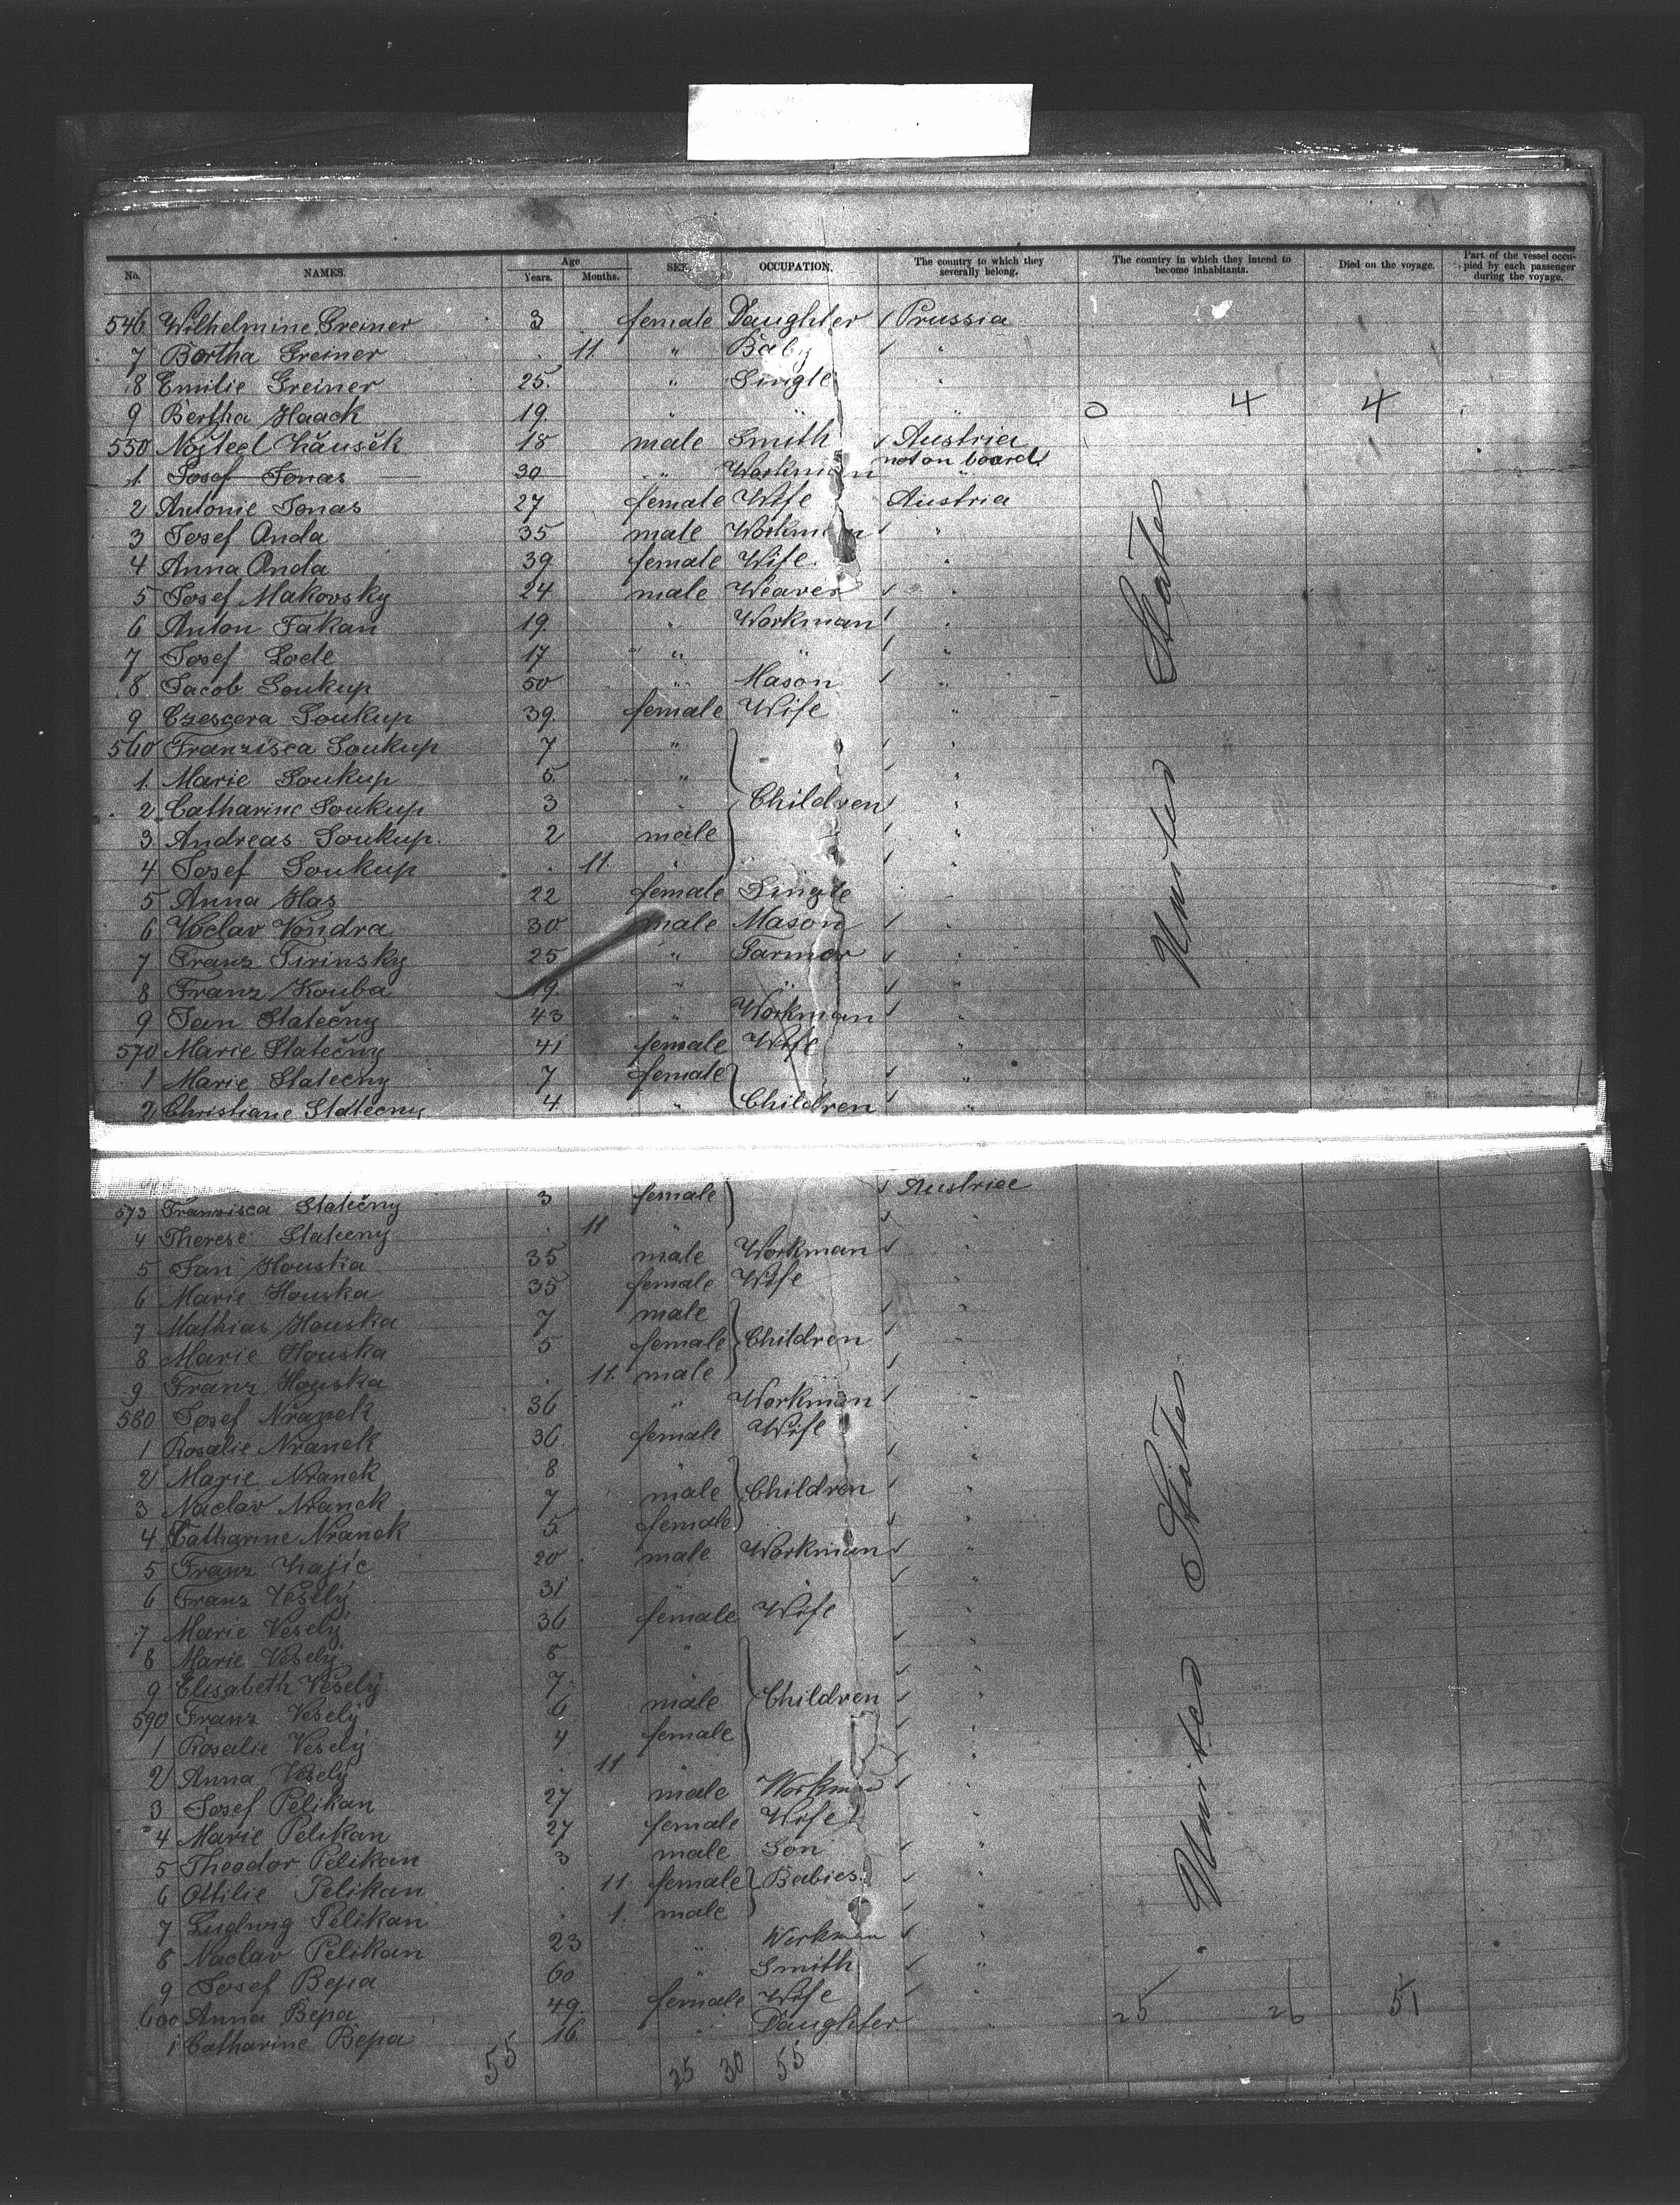 No. NAMES. Age Years. Months. SEX. OCCUPATION. The country to which they severally belong. The country in which they intend to become inhabitants. Died on the voyage. Part of the vessel occupied by each passenger during the voyage.
546 Wilhelmine Greiner 3 female Daughter Prussia
7 Bertha Greiner . 11 " Baby "
8 Emilie Greiner 25. " Single "
9 Bertha Haack 19. " " " 0 4 4
550 18 male Smith Austria
not on board
1. Josef Jonas 30 " Workman
2 Antonie Jonas 27 female Wife Austria
3 Josef Anda 35 male Workman "
4 Anna Anda 39 female Wife. "
5 Josef Makovsky 24 male Weaver "
6 Anton Fakan 19. " Workman "
7 Josef 17 " " "
8 Jacob Soukup 50 " Mason "
9 Soukup 39. female Wife "
560 Franzisca Soukup 7 " "
1. Marie Soukup 5. " "
2 Catharine Soukup 3 " Children "
3 Andreas Soukup. 2 male "
4 Josef Soukup . 11. " "
5 Anna Has 22 female Single "
6 Voclav Vondra 30. male Mason "
7 Franz Tirinsky 25 " Farmer "
8 Franz Kouba 19. " " "
9 Jan Statečny 43 " Workman "
570 Marie Statečny 41 female Wife "
1 Marie Statečny 7 female "
2 Christiane Statečny 4 " Children "
573 Franzisca Statečny 3 female Austria
4 Therese Statečny . 11 "
5 Jan Houska 35 male Workman "
6 Marie Houska 35 female Wife
7 Mathias Houska 7 male "
8 Marie Houska 5 female Children
9 Franz Houska . 11. male "
580 Josef Nřanek 36 " Workman "
1 Rosalie Nřanek 36. female Wife
2 Marie Nřanek 8 " "
3 Naclav Nřanek 7 male Children "
4 Catharine Nřanek 5 female "
5 Franz Zajic 20 male Workman "
6 Franz Veselý 31 " " "
7 Marie Veselý 36 female Wife
8 Marie Veselý 8 " "
9 Elisabeth Veselý 7. " "
590 Franz Veselý 6 male Children "
1 Rosalie Veselý 4 female "
2 Anna Veselý . 11 "
3 Josef Pelikan 27 male Workman "
4 Marie Pelikan 27 female Wife
5 Theodor Pelikan 3 male Son "
6 Ottilie Pelikan . 11. female Babies. "
7 Ludwig Pelikan . 1. male "
8 Naclav Pelikan 23 " Workman "
9 Josef Bepa 60 " Smith "
600 Anna Bepa 49. female Wife
1 Catharine Bepa 16. " Daughter " 25 26 51
55 25 30 55
United States
United States